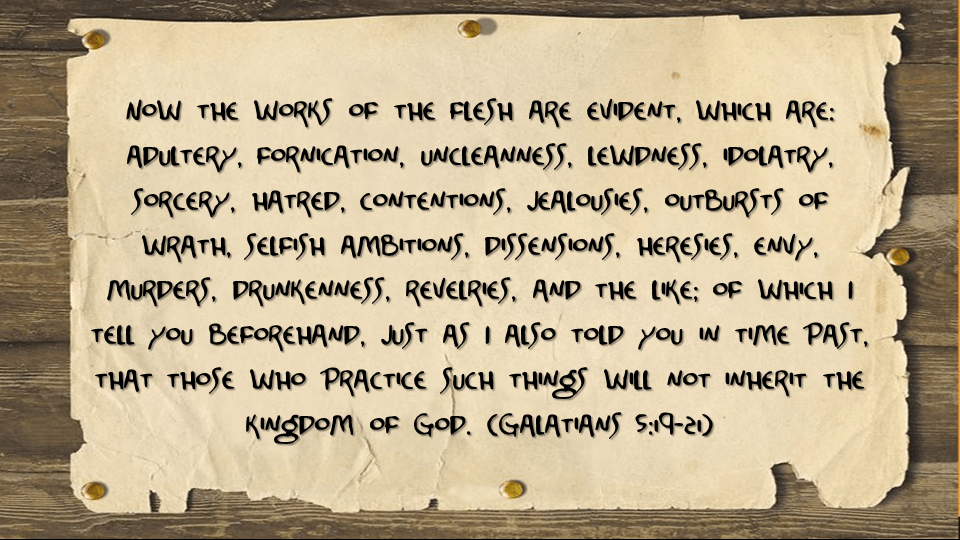 NOW THE WORKS OF THE FLESH ARE EVIDENT, WHICH ARE:
ADULTERY, FORNICATION, UNCLEANNESS, LEWDNESS, IDOLATRY,
SORCERY, HATRED, CONTENTIONS, JEALOUSIES, OUTBURSTS OF
WRATH, SELFISH AMBITIONS, DISSENSIONS, HERESIES, ENVY,
MURDERS, DRUNKENNESS, REVELRIES, AND THE LIKE; OF WHICH I
TELL YOU BEFOREHAND, JUST AS I ALSO TOLD YOU IN TIME PAST,
THAT THOSE WHO PRACTICE SUCH THINGS WILL NOT INHERIT THE
KINGDOM OF GOD. (GALATIANS 5:19-21)